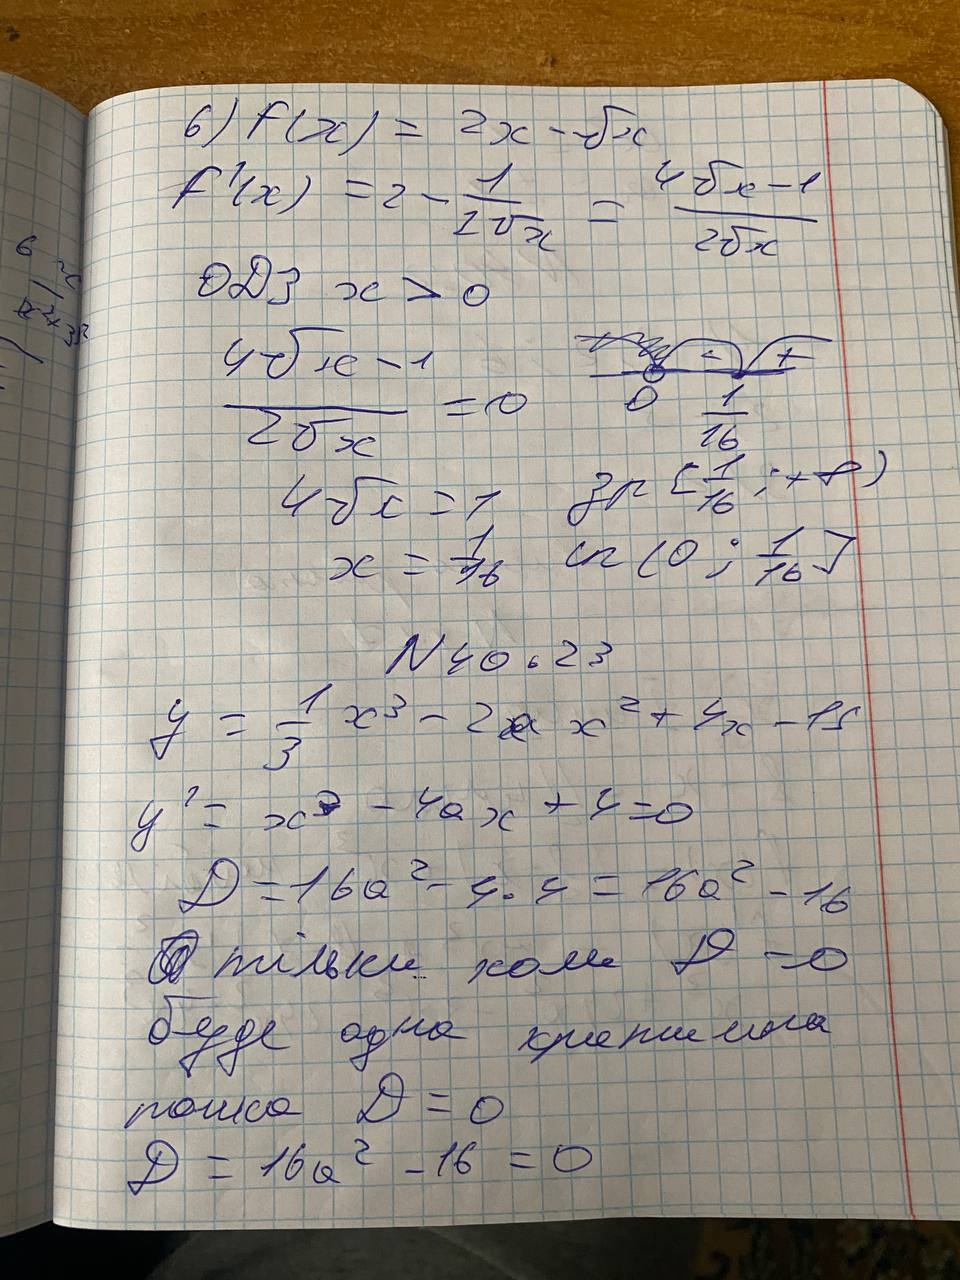 6) f(x) = 2x - √x
f'(x) = 2 - 1/(2√x) = (4√x - 1)/(2√x)
ОДЗ x > 0
(4√x - 1)/(2√x) = 0
- +
0 1/16
4√x = 1 зр [1/16; +∞)
x = 1/16 сп (0; 1/16]
N 40.23
y = 1/3 x³ - 2a x² + 4x - 15
y' = x² - 4ax + 4 = 0
D = 16a² - 4·4 = 16a² - 16
тільки коли D = 0
буде одна критична
точка D = 0
D = 16a² - 16 = 0
6
x²+3²